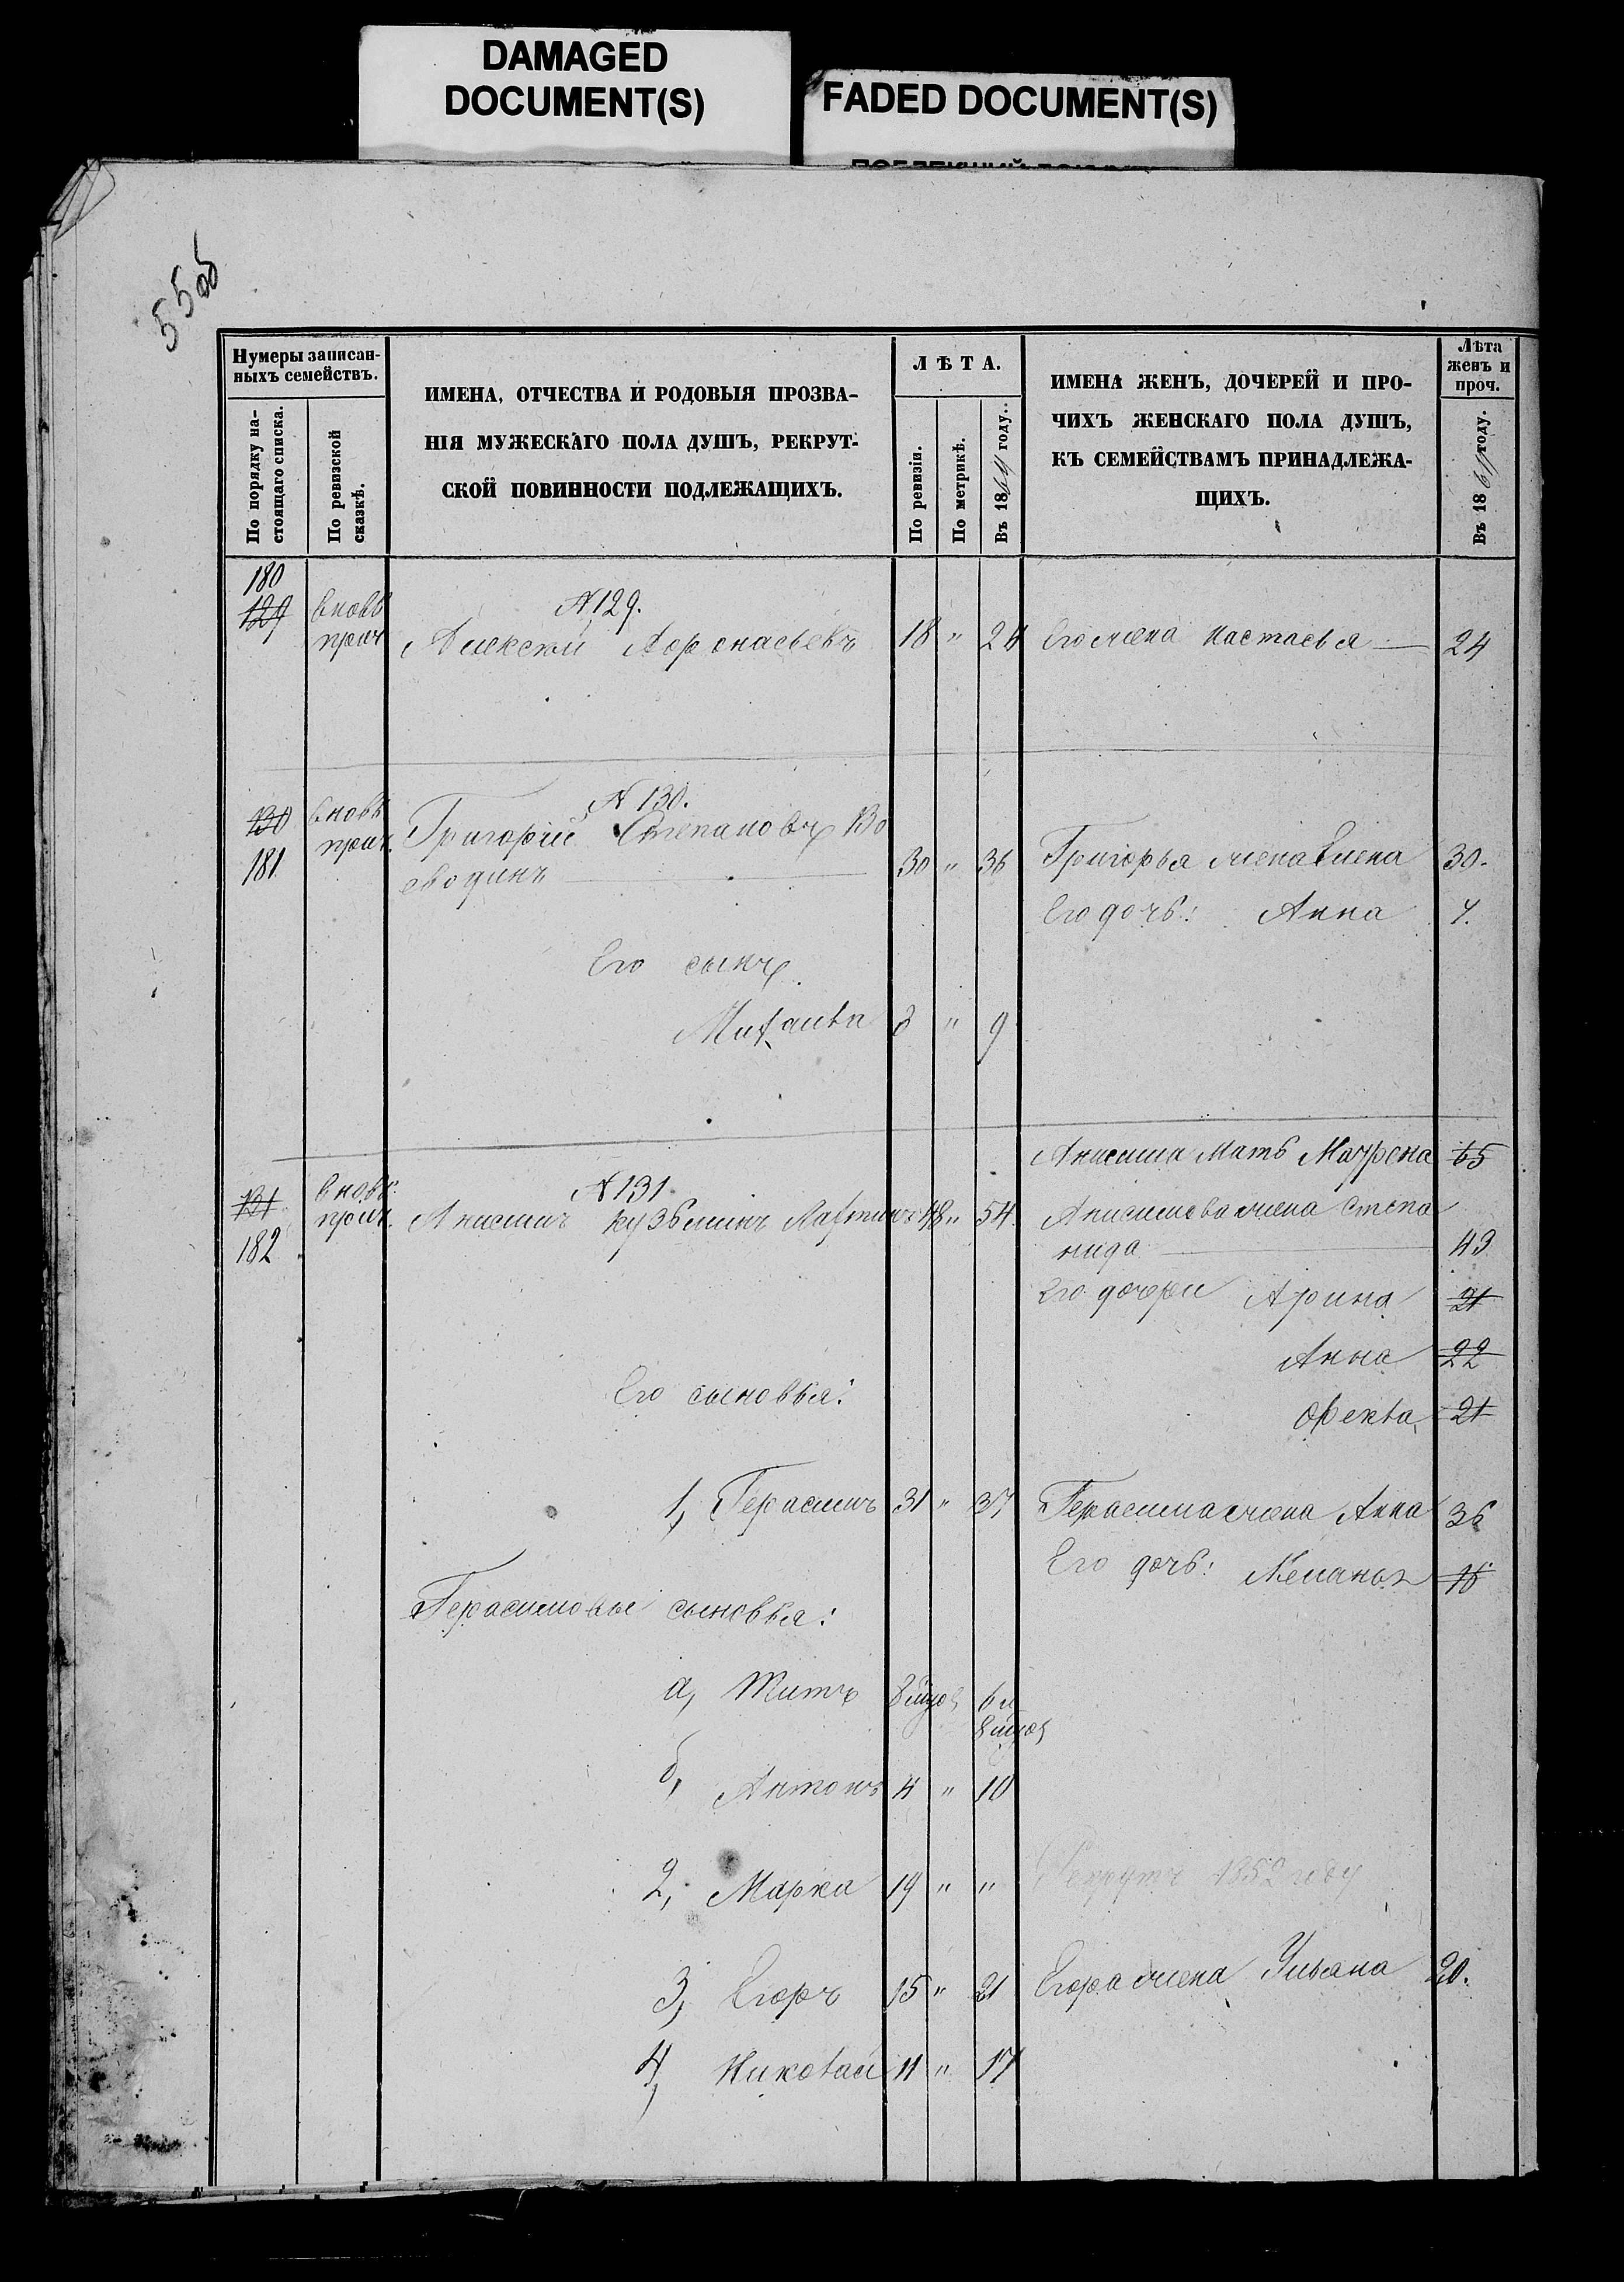 DAMAGED
DOCUMENT(S)
FADED DOCUMENT(S)
55об
Нумеры записан-
ныхъ семействъ.
По порядку на-
стоящаго списка.
По ревизской
сказкѣ.
ИМЕНА, ОТЧЕСТВА И РОДОВЫЯ ПРОЗВА-
НІЯ МУЖЕСКАГО ПОЛА ДУШЪ, РЕКРУТ-
СКОЙ ПОВИННОСТИ ПОДЛЕЖАЩИХЪ.
ЛѢТА.
По ревизіи.
По метрикѣ.
Въ 1864 году.
ИМЕНА ЖЕНЪ, ДОЧЕРЕЙ И ПРО-
ЧИХЪ ЖЕНСКАГО ПОЛА ДУШЪ,
КЪ СЕМЕЙСТВАМЪ ПРИНАДЛЕЖА-
ЩИХЪ.
Лѣта
женъ и
проч.
Въ 1864 году.
180
129 вновь N 129.
прич Алексѣй Афонасьевъ 18 " 24 Его жена Настасья 24
130 вновь N 130.
прич. Григорій Степановъ Во
181 еводинъ 30 " 36 Григорья жена Елена 30.
Его дочь: Анна 7.
Его сынъ
Михаила 3 " 9
Анисима Мать Матрена 65
131 вновь N 131
прич. Анисимъ Кузьминъ 48 " 54 Анисимова жена Степа
182 нида 43
Его дочери Арина 21
Анна 22
Фекла 21
Его сыновья:
1, Герасимъ 31 " 37 Герасима жена Анна 36
Его дочь: Меланья 16
Герасимовы сыновья:
а, Титъ
б, Антонъ 4 " 10
2, Марка 19 " " Рекрутъ 1852 году
3, Егоръ 15 " 21 Егора жена Ульяна 20.
4, Николай 11 " 17